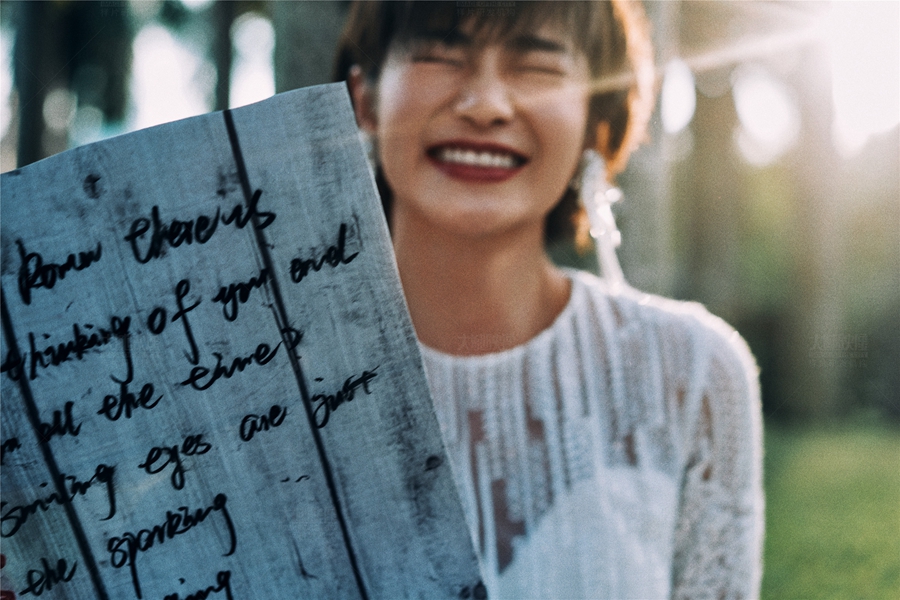 there is
thinking of you and
all the time?
smiling eyes are just
the sparking